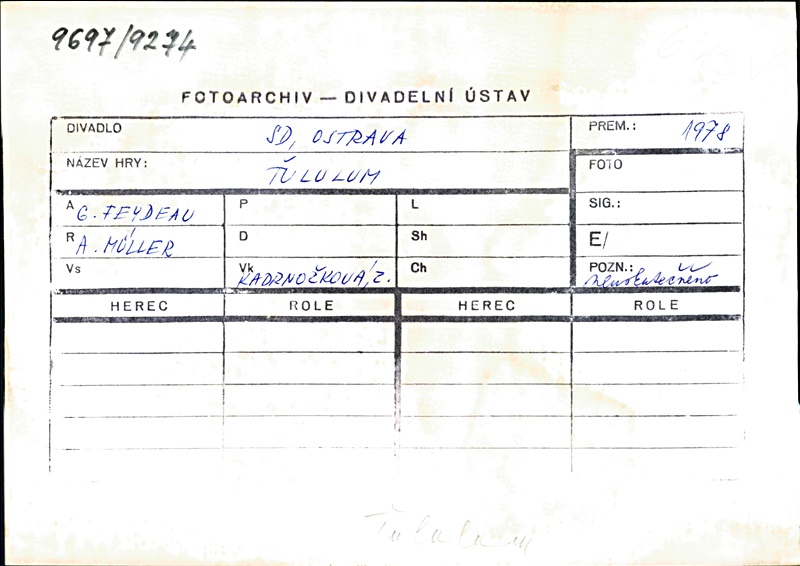 9697/9274
FOTOARCHIV — DIVADELNÍ ÚSTAV
DIVADLO SD, OSTRAVA PREM.: 1978
NÁZEV HRY: ŤULULUM FOTO
A G. FEYDEAU P L SIG.:
R A. MÜLLER D Sh E/
Vs Vk KADRNOŽKOVÁ, Z. Ch POZN.: neuskutečněno
HEREC ROLE HEREC ROLE
Ťululum